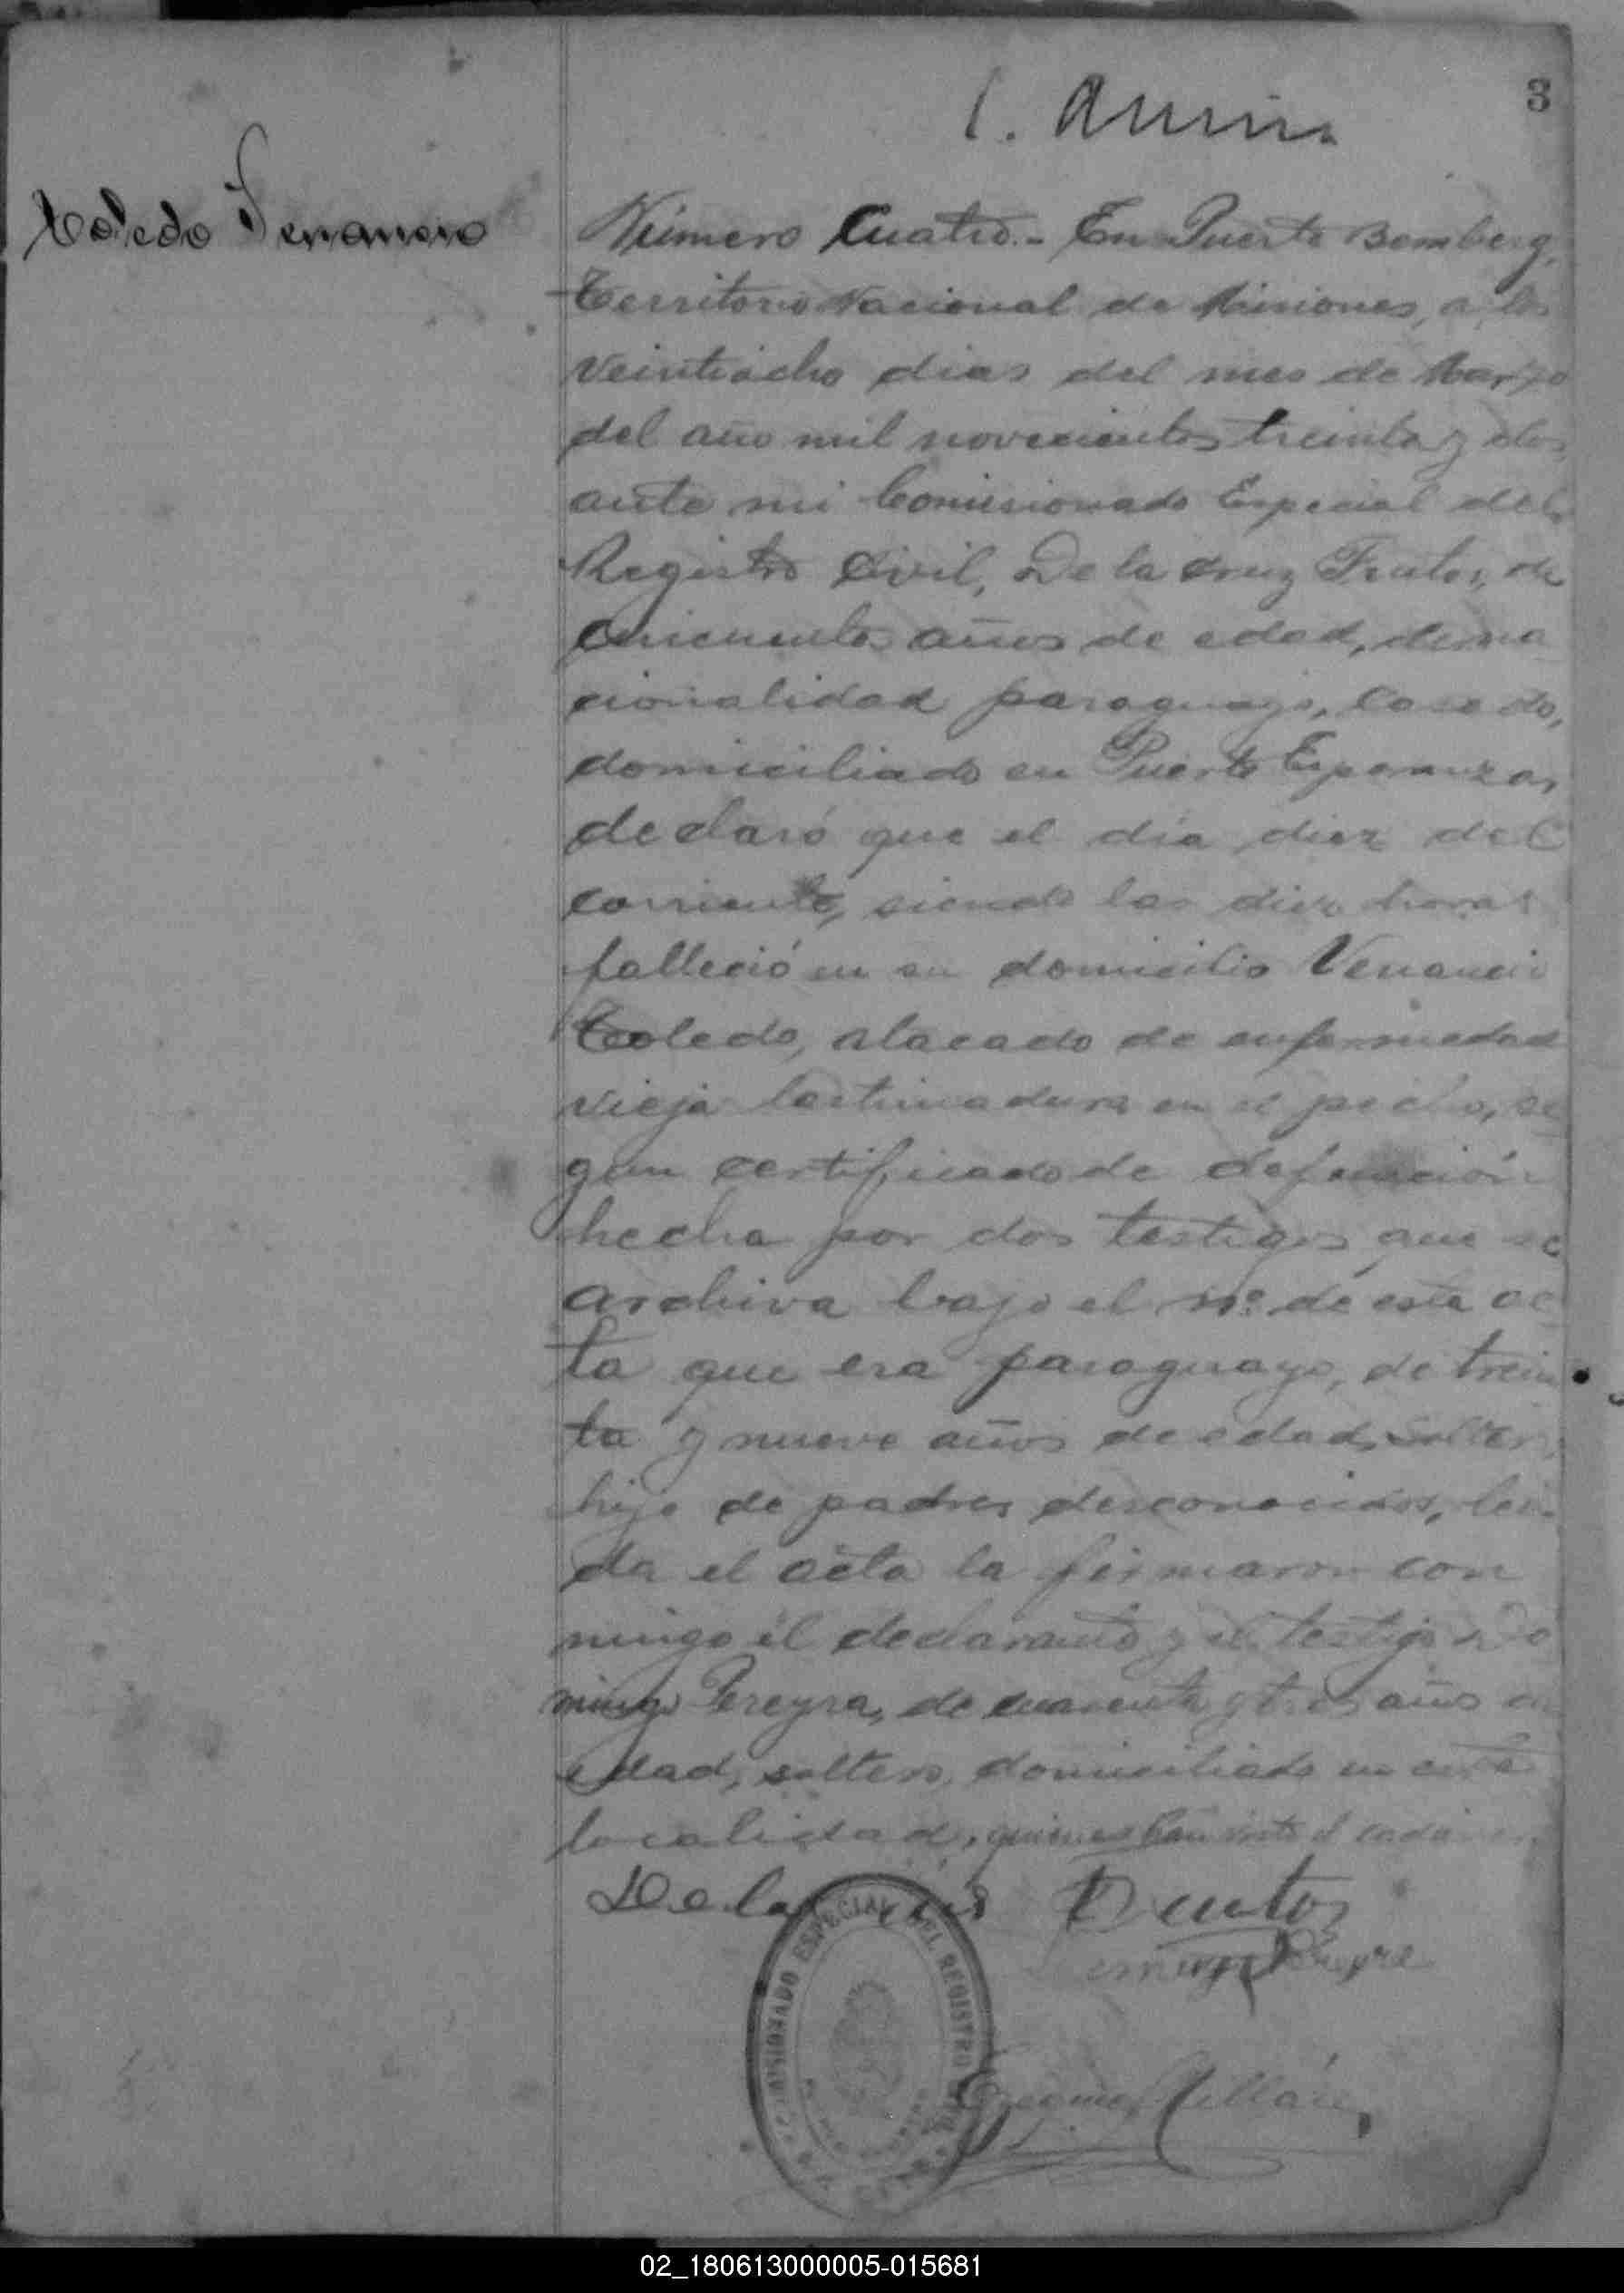 3
Toledo Venancio
Número Cuatro.- En Puerto Bemberg,
Territorio Nacional de Misiones, a los
veintiocho dias del mes de Marzo
del año mil novecientos treinta y dos
ante mi Comisionado Especial del
Registro Civil, De la Cruz Frutos, de
cincuenta años de edad, de na
cionalidad paraguayo, casado,
domiciliado en Puerto Esperanza,
declaró que el día diez del
corriente, siendo las diez horas
falleció en su domicilio Venancio
Toledo, atacado de enfermedad
vieja lastimadura en el pecho, se
gun certificado de defunción
hecha por dos testigos que se
archiva bajo el nº de esta ac
ta que era paraguayo, de trein
ta y nueve años de edad, soltero,
hijo de padres desconocidos, lei
da el acta la firmaron con
migo él declarante y el testigo Do
mingo Pereyra, de cuarenta y tres años de
edad, soltero, domiciliado en esta
localidad, quienes han visto el cadáver.
De la Frutos
COMISIONADO ESPECIAL DEL REGISTRO CIVIL